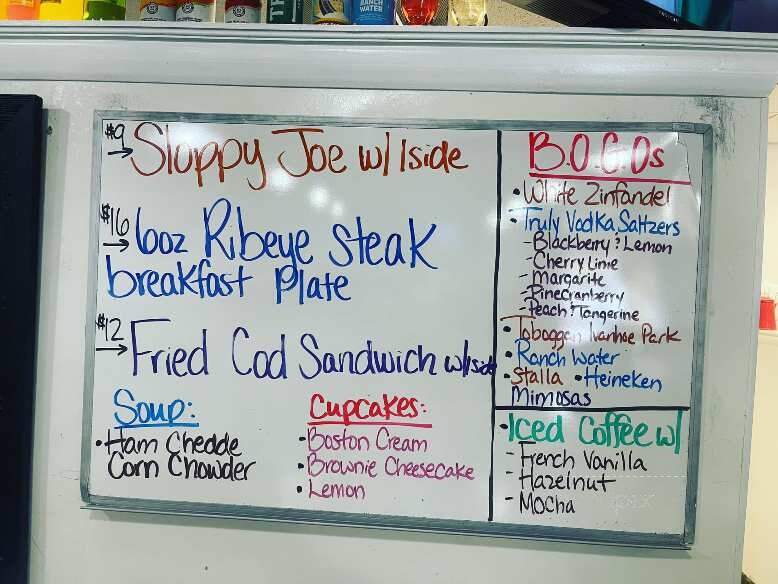 RANCH
WATER
$9 → Sloppy Joe w/ 1side
$16 → 6oz Ribeye Steak
breakfast Plate
$12 → Fried Cod Sandwich w/1side
Soup:
• Ham Chedde
Corn Chowder
Cupcakes:
• Boston Cream
• Brownie Cheesecake
• Lemon
B.O.G.Os
• White Zinfandel
• Truly Vodka Saltzers
- Blackberry & Lemon
- Cherry Lime
- Margarite
- Pinecranberry
- Peach & Tangerine
• Toboggan Ivanhoe Park
• Ranch Water
• Stalla • Heineken
Mimosas
• Iced Coffee w/
- French Vanilla
- Hazelnut
- Mocha